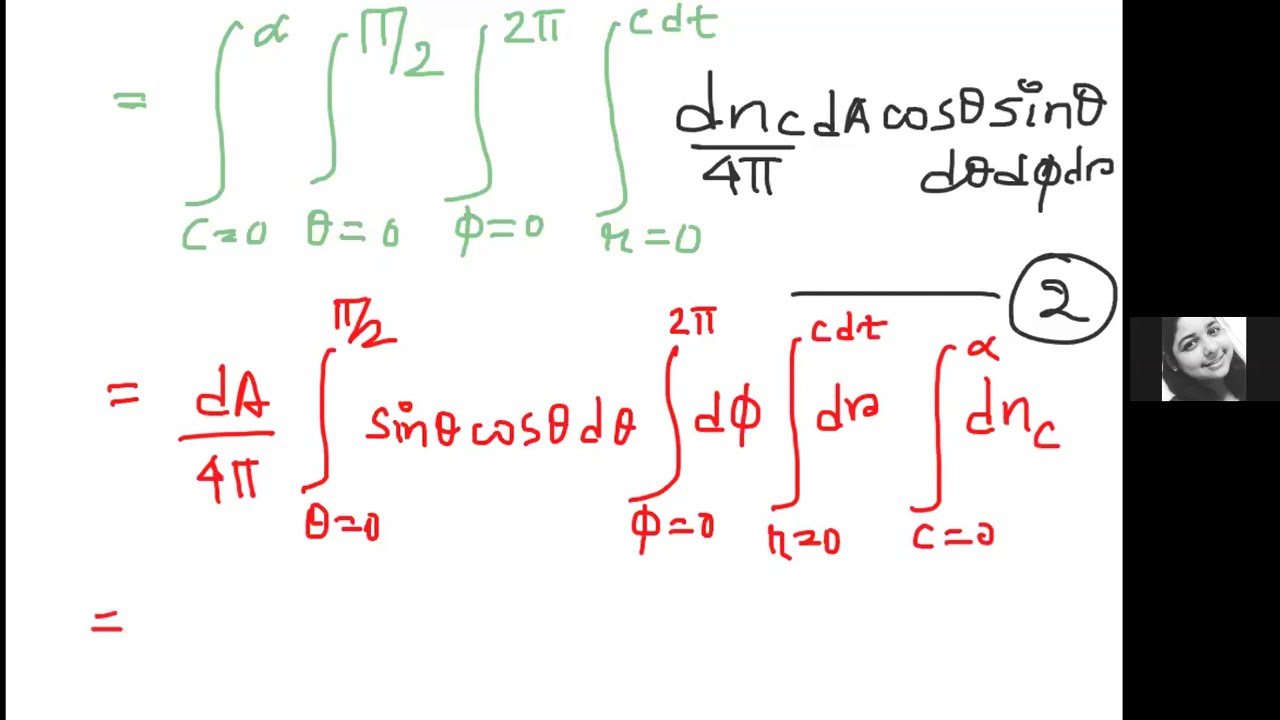 = ∫_{c=0}^{α} ∫_{θ=0}^{π/2} ∫_{φ=0}^{2π} ∫_{r=0}^{cdt} dn_c/4π dA cosθ sinθ
dθ dφ dr
2
= dA/4π ∫_{θ=0}^{π/2} sinθ cosθ dθ ∫_{φ=0}^{2π} dφ ∫_{r=0}^{cdt} dr ∫_{c=0}^{α} dn_c
=